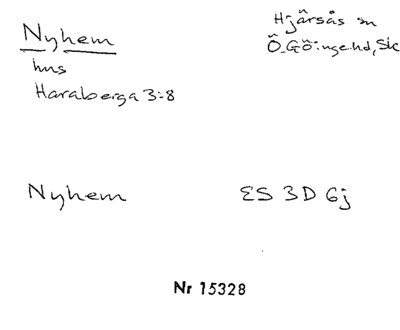 Nyhem
Hjärsås sn
Ö. Göinge hd, Sk
hus
Haraberga 3:8
Nyhem
ES 3D 6j
Nr 15328